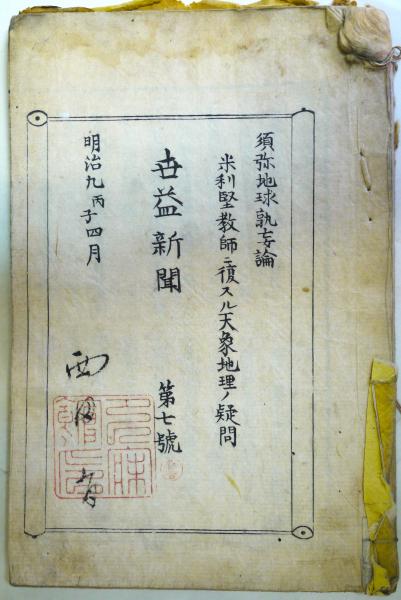 須弥地球孰妄論
米利堅教師ニ復スル天象地理ノ疑問
世益新聞
第七號
明治九丙子四月
西